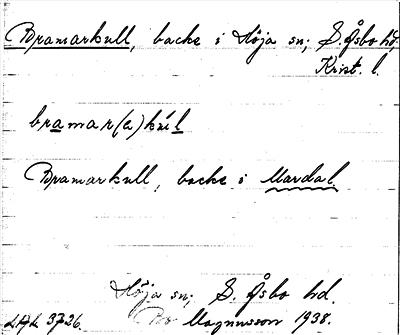 Bramarkull, backe i Höja sn; S. Åsbo hd.
Krist. l.
bramar(a)kúl
Bramarkull, backe i Mardal.
Höja sn; S. Åsbo hd.
3726. Magnusson 1938.